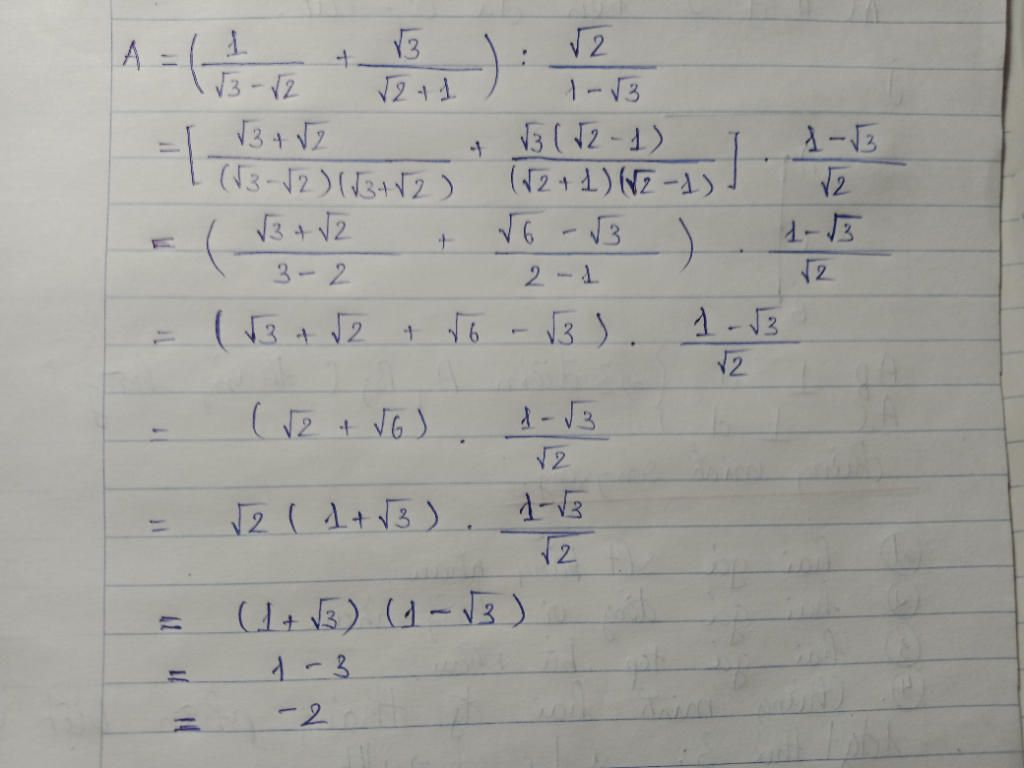 A = ( 1/(√3 − √2) + √3/(√2 + 1) ) : √2/(1 − √3)
= [ (√3 + √2)/((√3 − √2)(√3 + √2)) + √3(√2 − 1)/((√2 + 1)(√2 − 1)) ] . (1 − √3)/√2
= ( (√3 + √2)/(3 − 2) + (√6 − √3)/(2 − 1) ) . (1 − √3)/√2
= (√3 + √2 + √6 − √3) . (1 − √3)/√2
= (√2 + √6) . (1 − √3)/√2
= √2 (1 + √3) . (1 − √3)/√2
= (1 + √3) (1 − √3)
= 1 − 3
= −2